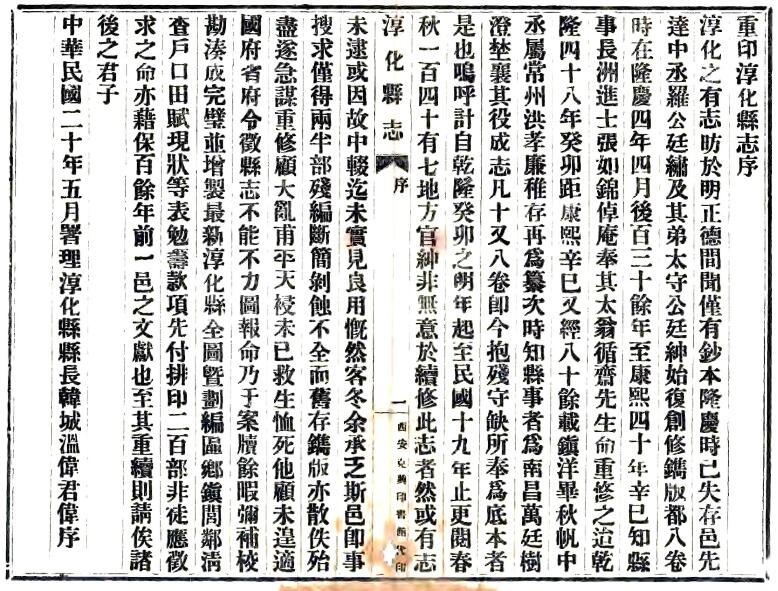 重印淳化縣志序
淳化之有志昉於明正德間聞僅有鈔本隆慶時已失存邑先
達中丞羅公廷繡及其弟太守公廷紳始復創修鐫版都八卷
時在隆慶四年四月後百三十餘年至康熙四十年辛巳知縣
事長洲進士張如錦倬庵奉其太翁循齋先生命重修之迨乾
隆四十八年癸卯距康熙辛巳又經八十餘載鎮洋畢秋帆中
丞屬常州洪孝廉稚存再爲纂次時知縣事者爲南昌萬廷樹
澄埜襄其役成志凡十又八卷卽今抱殘守缺所奉爲底本者
是也嗚呼計自乾隆癸卯之明年起至民國十九年止更閱春
秋一百四十有七地方官紳非無意於續修此志者然或有志
淳化縣志 序 一 西安克興印書館代印
未逮或因故中輟迄未實見良用慨然客冬余承乏斯邑卽事
搜求僅得兩半部殘編斷簡剝蝕不全而舊存鐫版亦散佚殆
盡遂急謀重修顧大亂甫平天祲未已救生恤死他顧未遑適
國府省府令徵縣志不能不力圖報命乃于案牘餘暇彌補校
勘湊成完璧並增製最新淳化縣全圖曁劃編區鄉鎮閭鄰淸
查戶口田賦現狀等表勉籌款項先付排印二百部非徒應徵
求之命亦藉保百餘年前一邑之文獻也至其重續則請俟諸
後之君子
中華民國二十年五月署理淳化縣縣長韓城溫偉君偉序